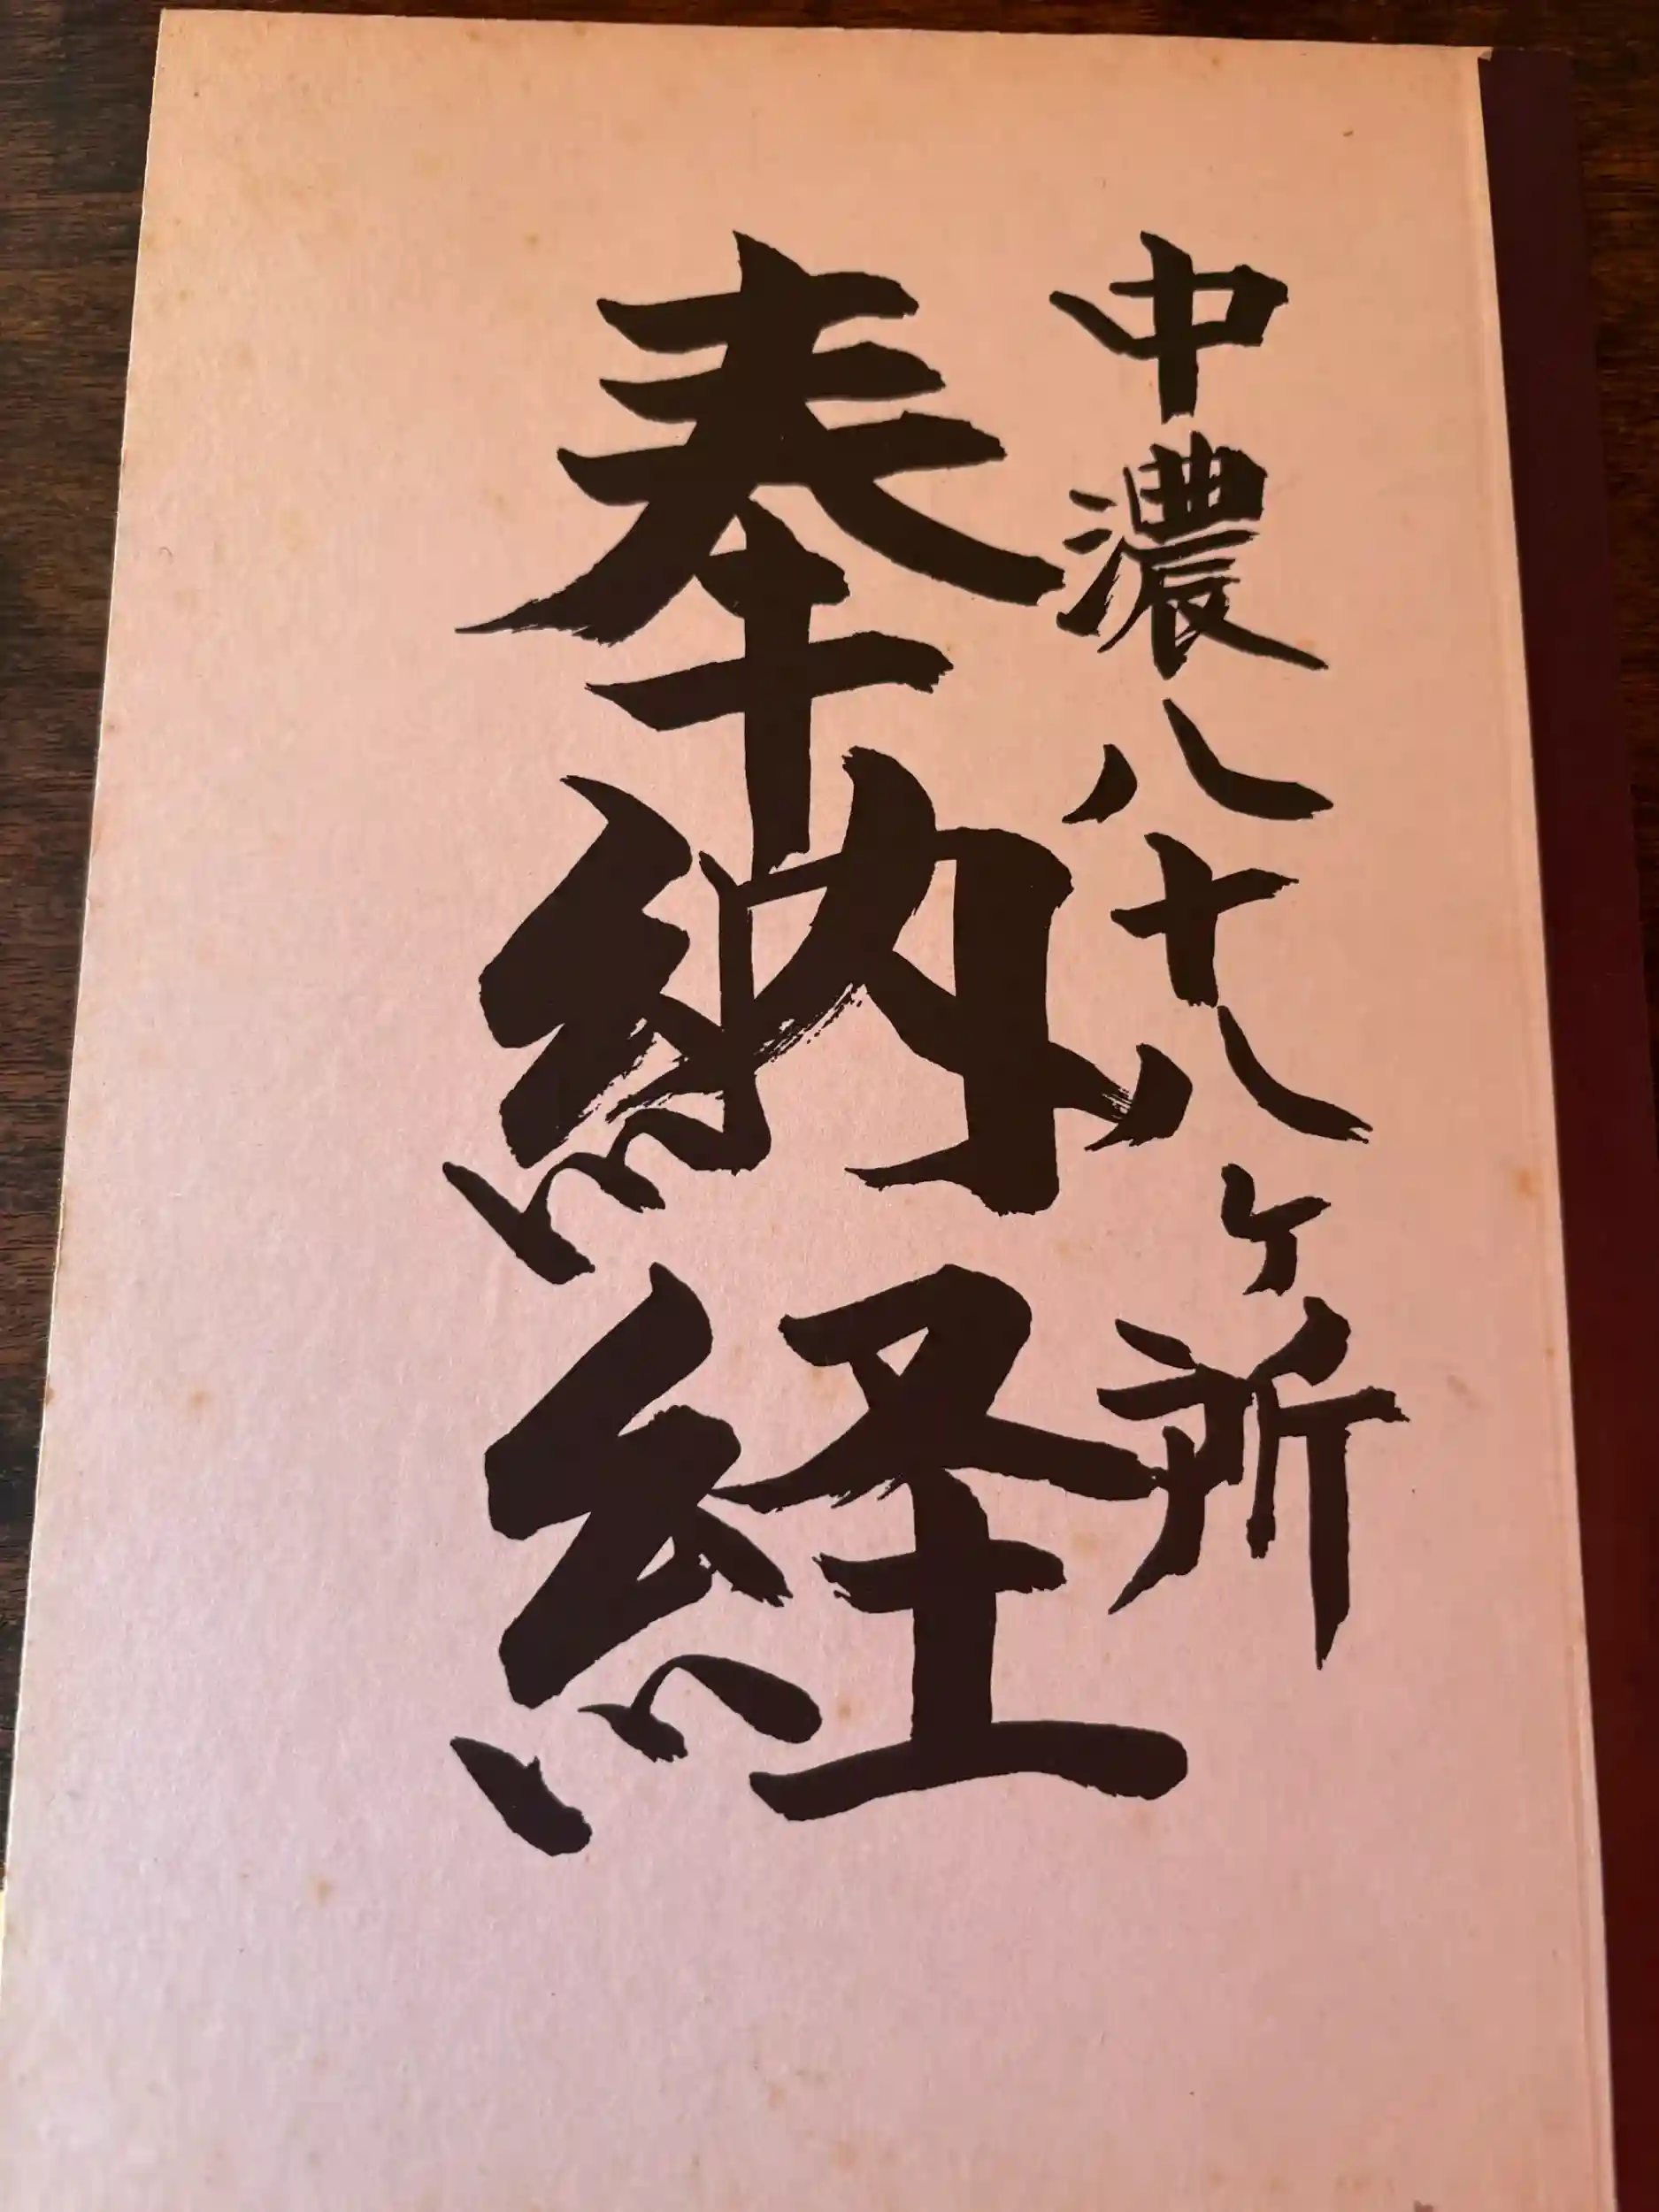 中濃八十八ヶ所
奉納経